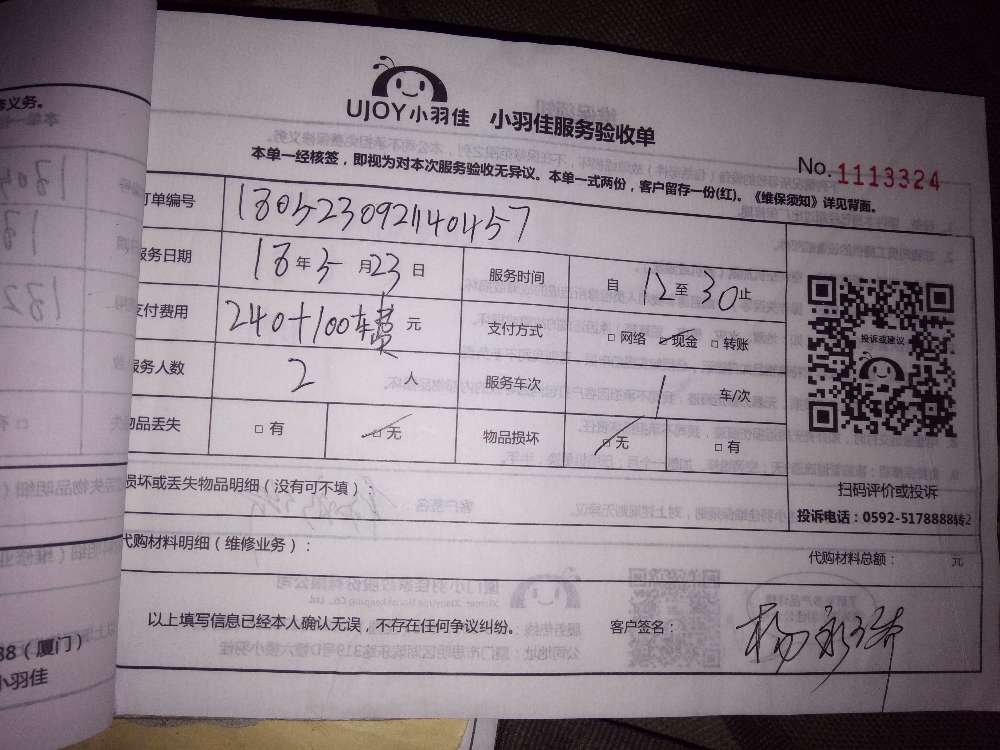 UJOY小羽佳 小羽佳服务验收单
本单一经核签，即视为对本次服务验收无异议。本单一式两份，客户留存一份(红)。《维保须知》详见背面。
No.1113324
订单编号 180523092140457
服务日期 18年5月23日 服务时间 自12至30止
支付费用 240+100车费元 支付方式 □网络 ☑现金 □转账
服务人数 2人 服务车次 1 车/次
物品丢失 □有 ☑无 物品损坏 ☑无 □有
投诉或建议
扫码评价或投诉
投诉电话：0592-5178888转2
损坏或丢失物品明细（没有可不填）：
代购材料明细（维修业务）： 代购材料总额： 元
以上填写信息已经本人确认无误，不存在任何争议纠纷。 客户签名：
义务。
88（厦门）
小羽佳